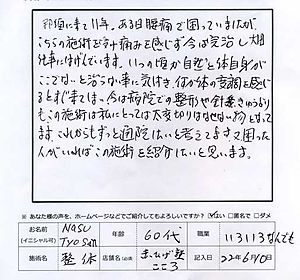 那須に来て11年。ある日腰痛で困っていましたが、
こちらの施術を
痛みを感じず今は完治し大好
仕事にはげんでいます。いつの
自然と体自身が
ここでないと治らない事に気付き、
体の変調を感じ
今は病院での整形や針きゅうより
も この施術は私にとっては大変切りはなせない物となって
ます。これからもずっと通院したいと考えてます。又困った
人がいればこの施術を紹介したいと思います。
※ あなた様の声を、ホームページなどでご紹介してもよろしいですか? はい □匿名で □ダメ
お名前 (イニシャル可) Nasu 年齢 60代 職業 いろいろなんでも
施術名 整体 店舗名(必須) こころ 記入日 22年6月10日